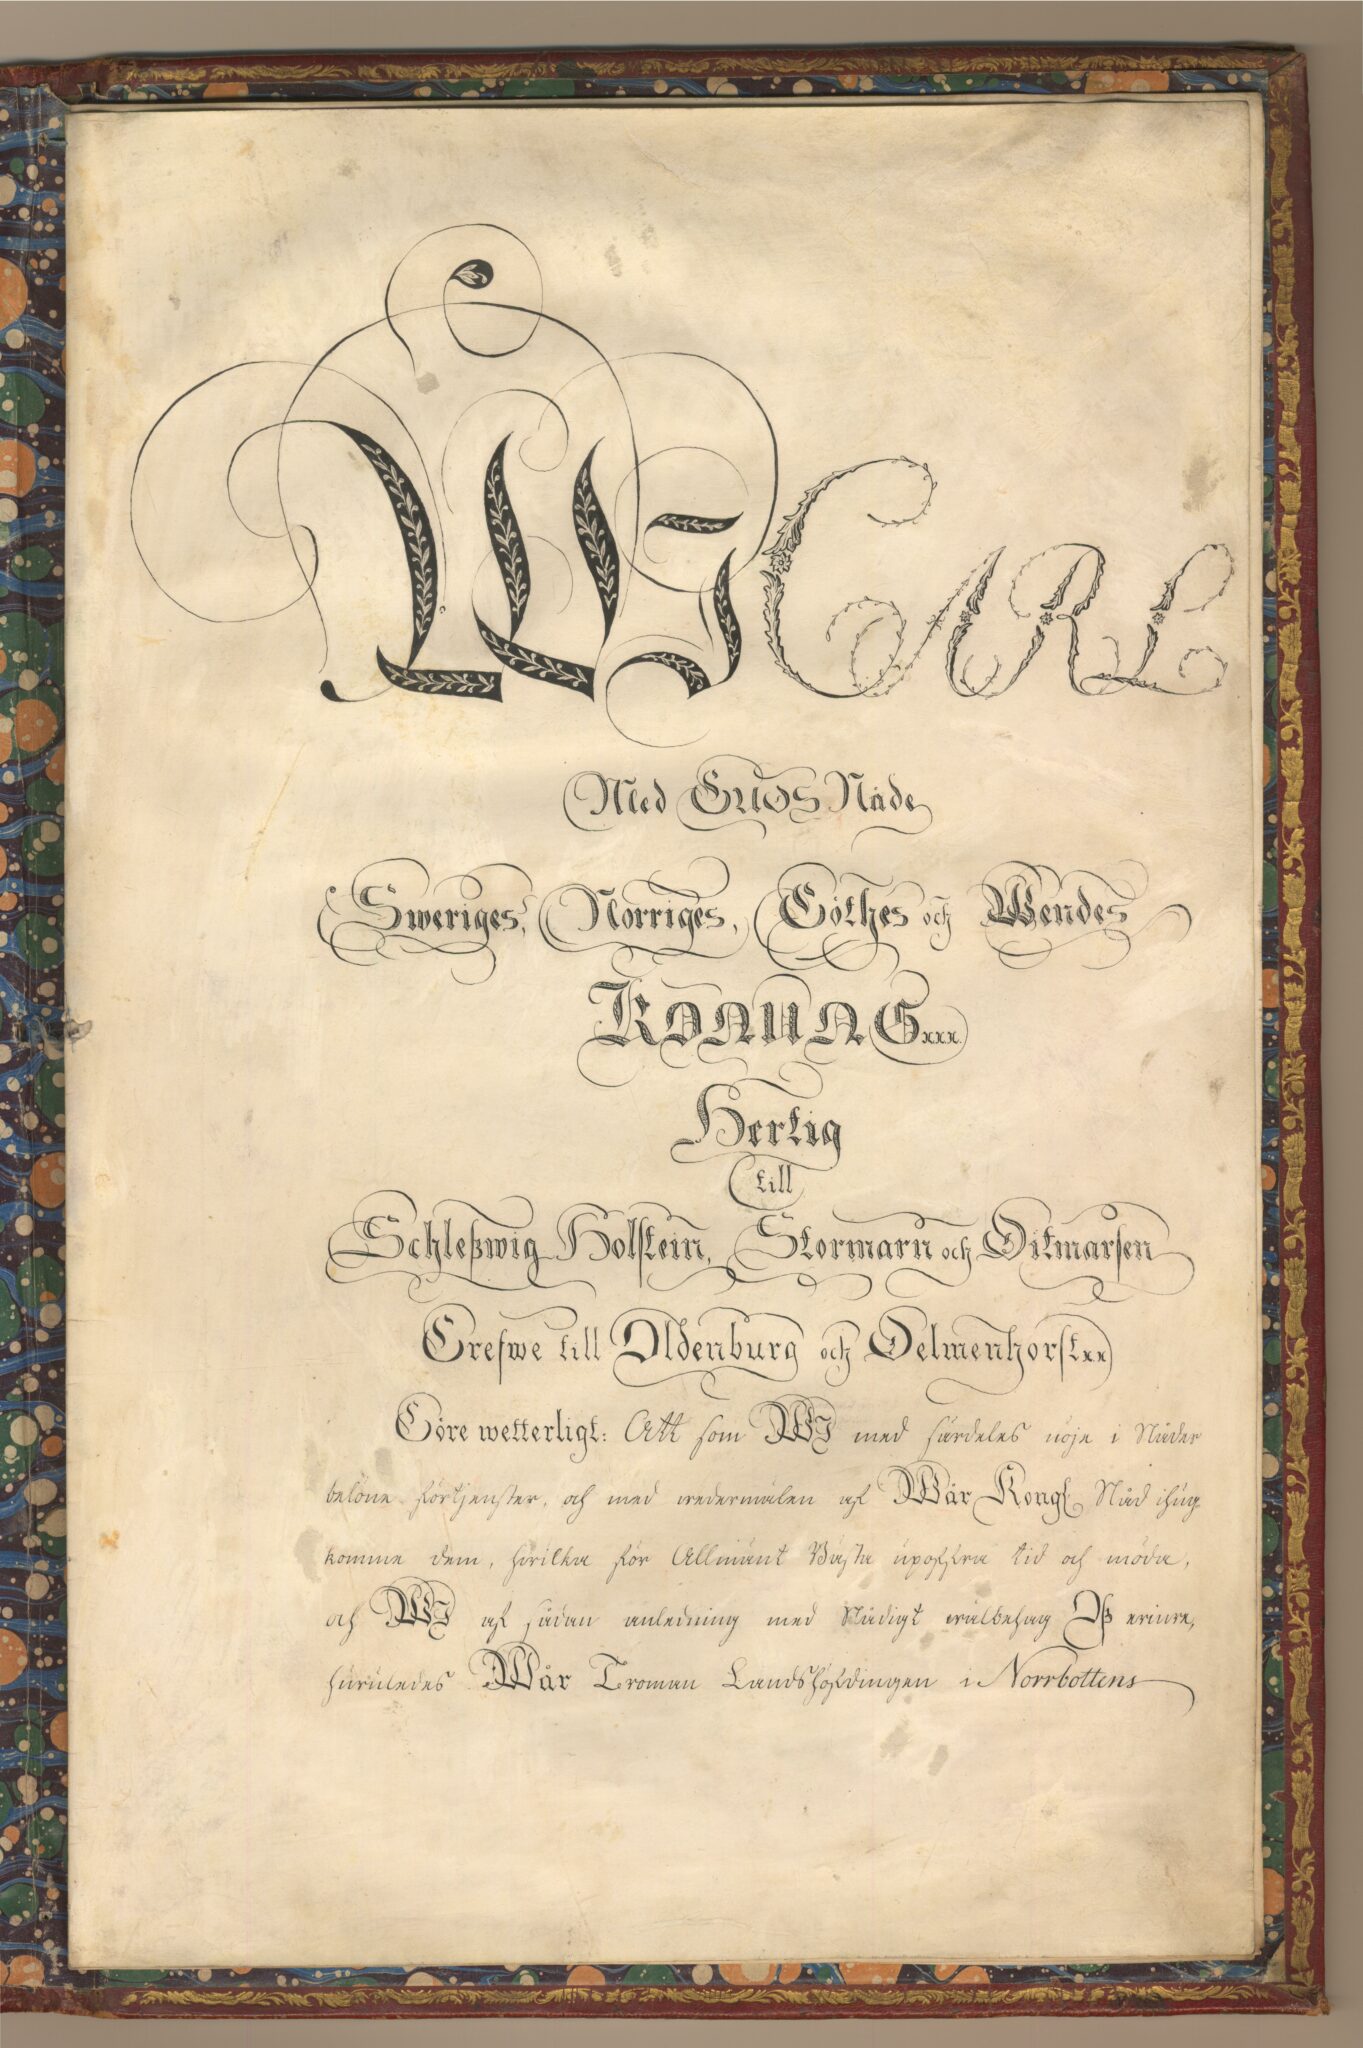 WJ CARL
Med GUDS Nåde
Sweriges, Norriges, Göthes och Wendes
KONUNG xxx.
Hertig
till
Schleßwig Holstein, Stormarn och Ditmarsen
Grefwe till Oldenburg och Delmenhorst xx
Göre wetterligt: Att som WJ med särdeles nöje i Nåder
belöne förtjenster, och med wedermälen af Wår Kongl Nåd ihug
komme dem, hwilka för Allmänt Bästa upoffra tid och möda,
och WJ af sådan anledning med Nådigt wälbehag Oß erinre,
huruledes Wår Troman Landshöfdingen i Norrbottens